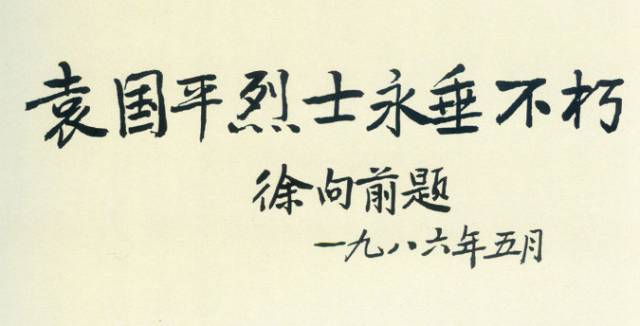 袁国平烈士永垂不朽
徐向前题
一九八六年五月